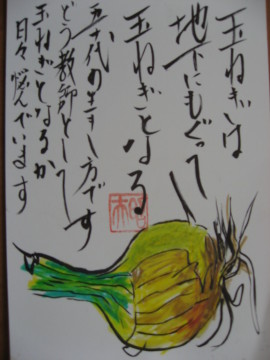 玉ねぎは
地下にもぐって
玉ねぎとなる
五十代の生き方です
どう教師として
玉ねぎとなるか
日々悩んでいます